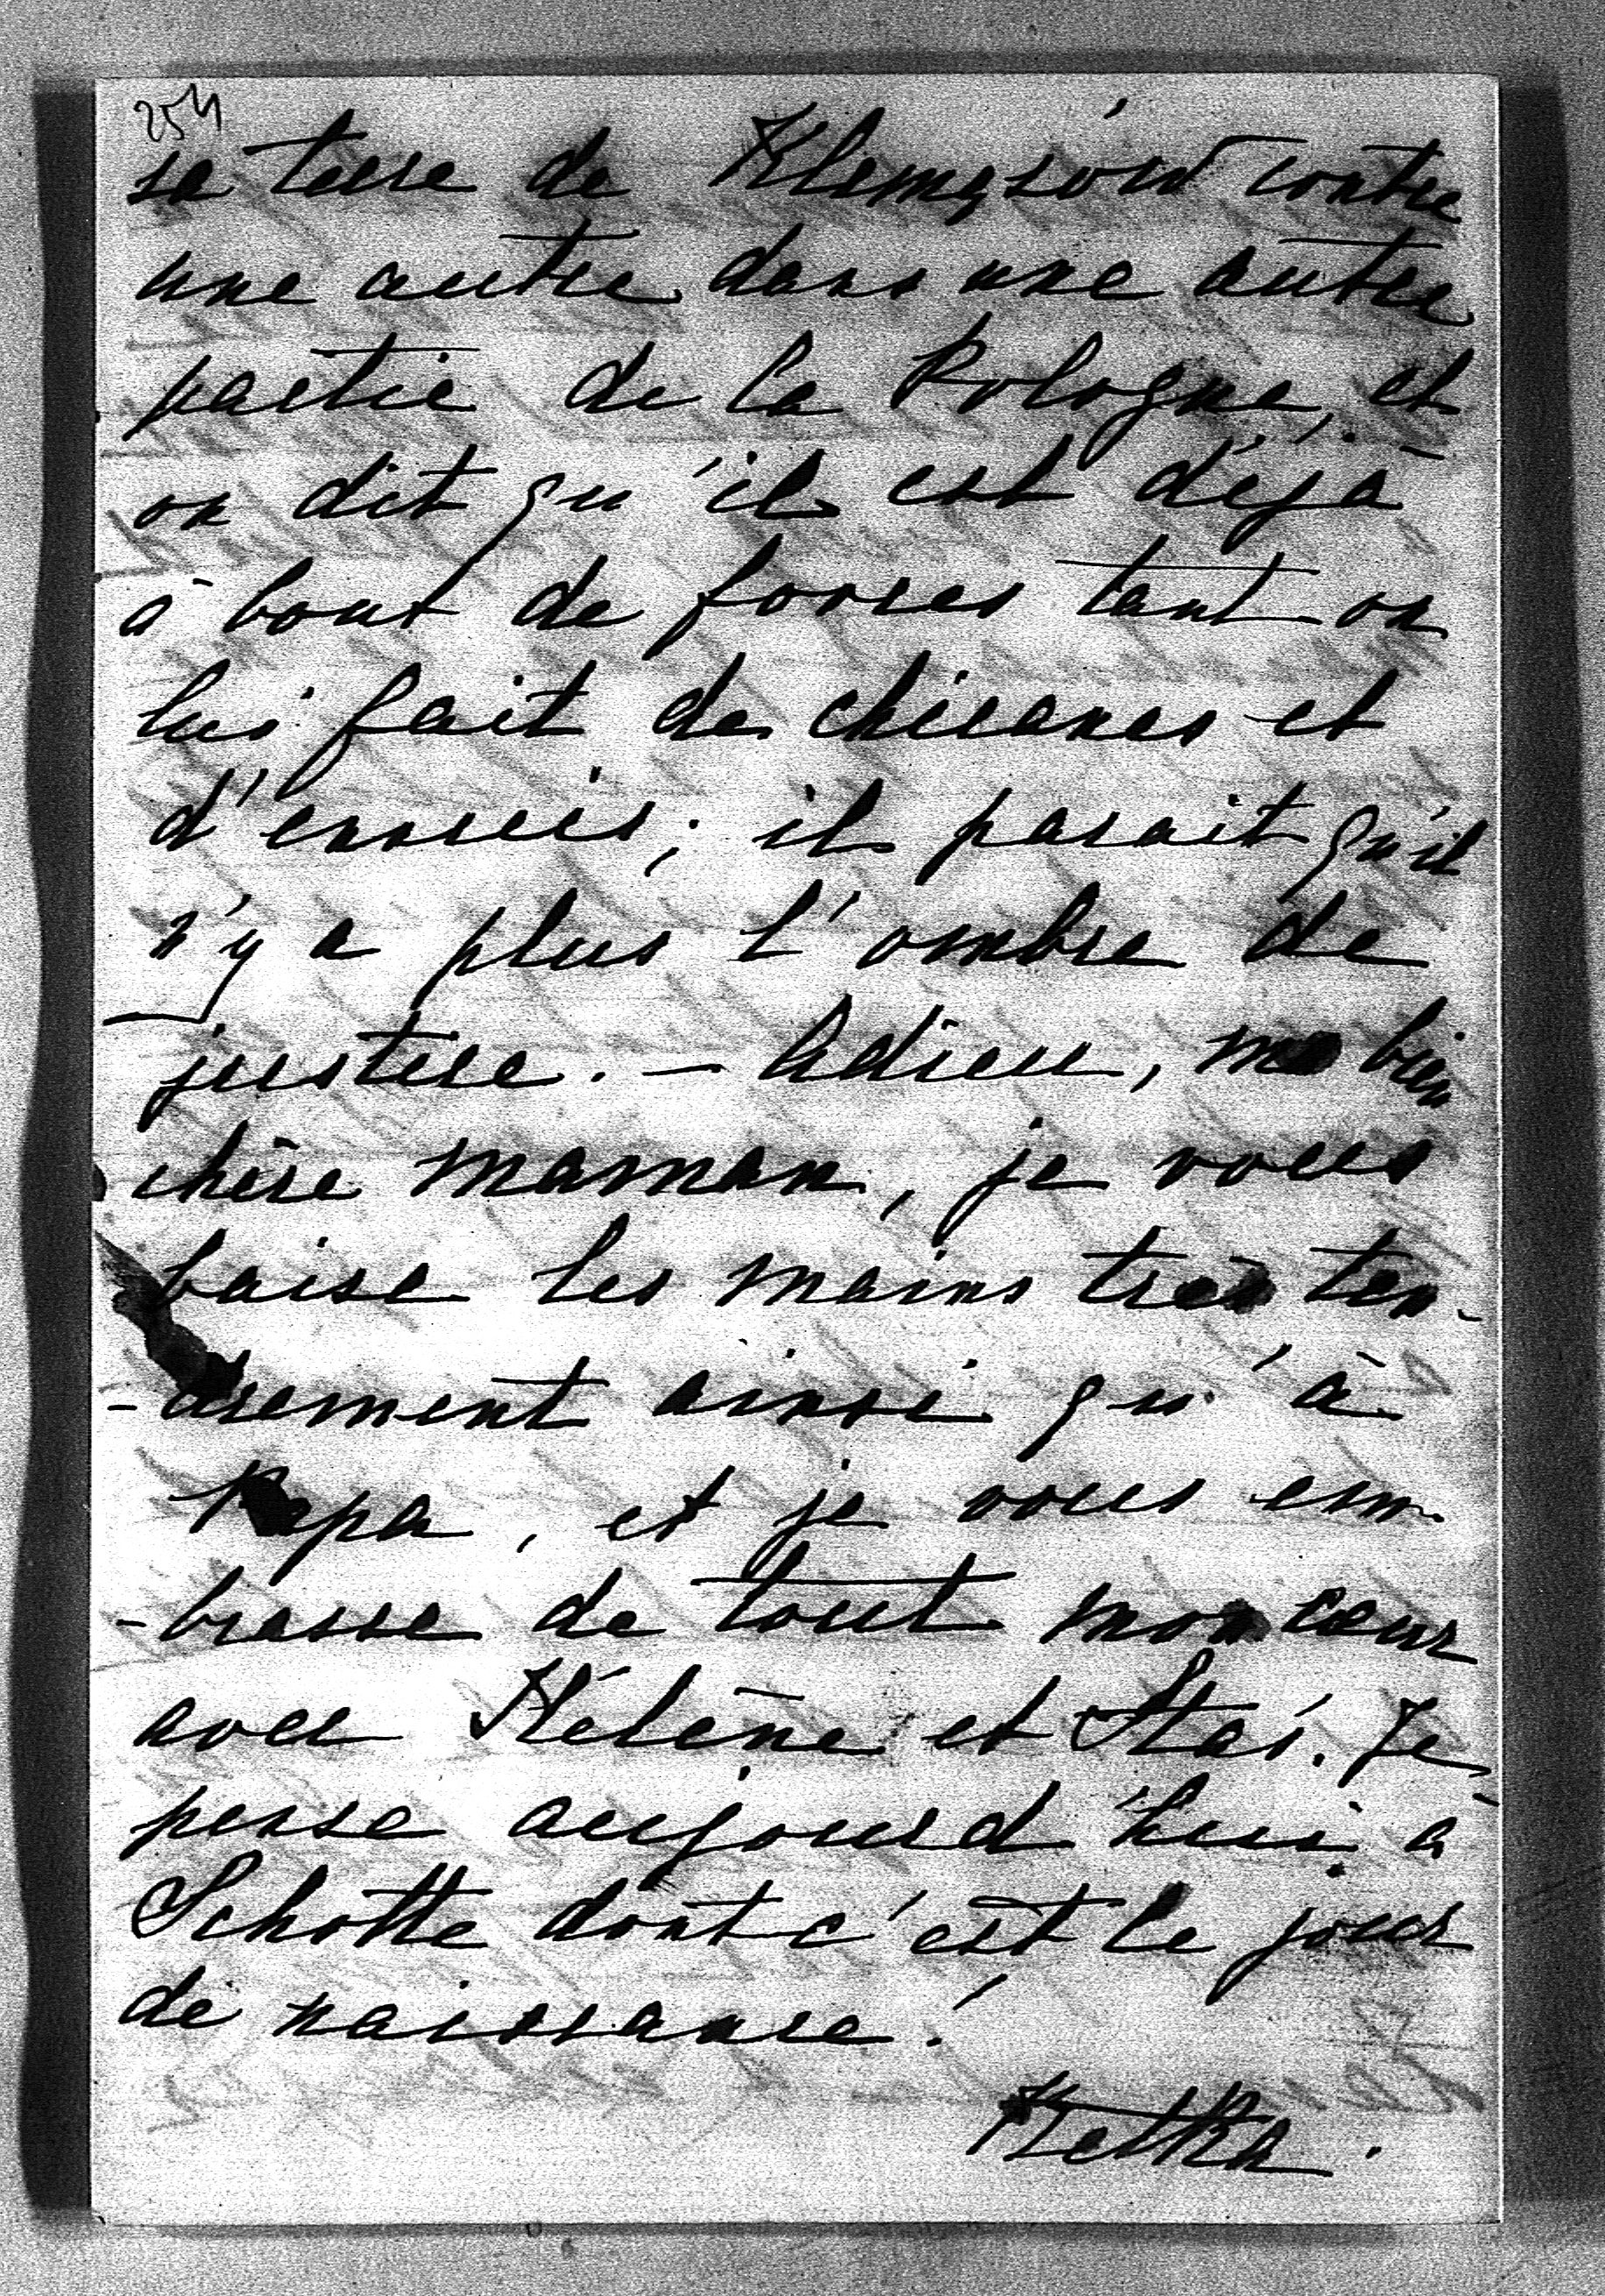 254
sa terre de Klemęsów contre
une autre dans une autre
partie de la Pologne, et
on dit qu'il est déjà
à bout de forces tant on
lui fait de chicanes et
d'ennuis; il parait qu'il
n'y a plus l'ombre de
justice. — Adieu, ma bien
chère maman, je vous
baise les mains très ten-
-drement ainsi qu'à
Papa, et je vous em-
-brasse de tout mon cœur
avec Hélène et Staś. Je
pense aujourd'hui à
Schotte dont c'est le jour
de naissance!
Ketka.